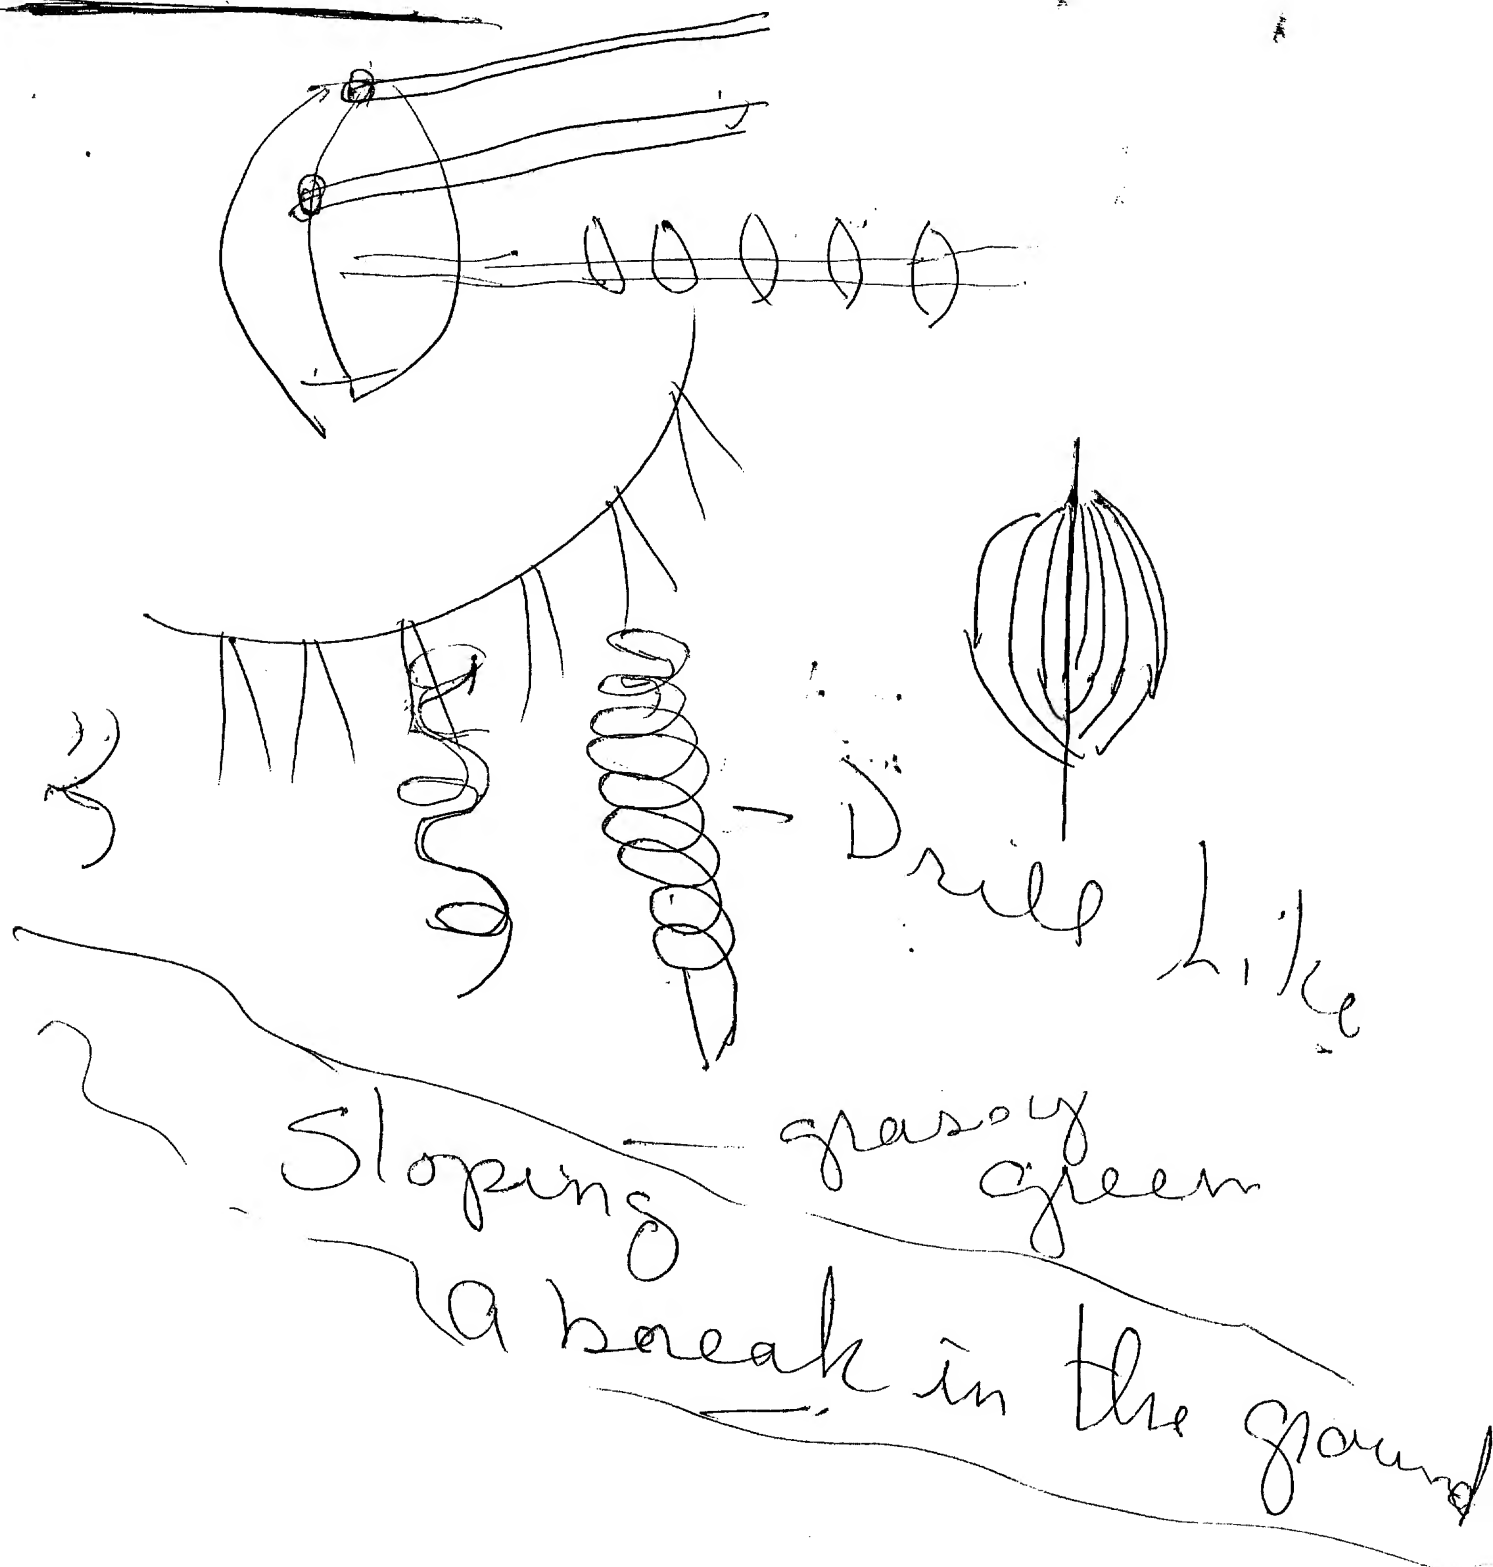 - Drill Like
Sloping
grassy
green
a break in the ground